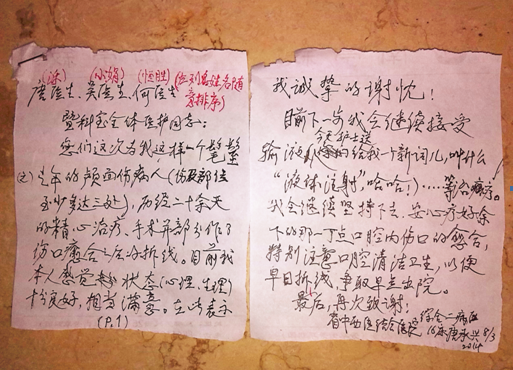 (小娟) (恒胜) (医刘名姓名随
意排序)
唐医生、吴医生、何医生
暨科室全体医护同志：
您们这次为我这样一个
之年的颜面伤病人(伤及部位
至少多达三处)，历经二十余天
的精心治疗，手术并部分作了
伤口愈合之后的拆线。目前我
本人感觉状态(心理、生理)
十分良好，相当满意。在此表示
(P.1)
我诚挚的谢忱！
目前下一步我会继续接受
输液(今天护士送给我一个新词儿，叫什么
“液体注射”哈哈！)……等治疗。
我会继续坚持下去，安心养好余
下的那一丁点口腔内伤口的愈合，
特别注意口腔清洁卫生，以便
早日拆线，争取早点出院。
最后，再次致谢！
省中西医结合医院综合二病区
16床 唐承兴 8/3
2014